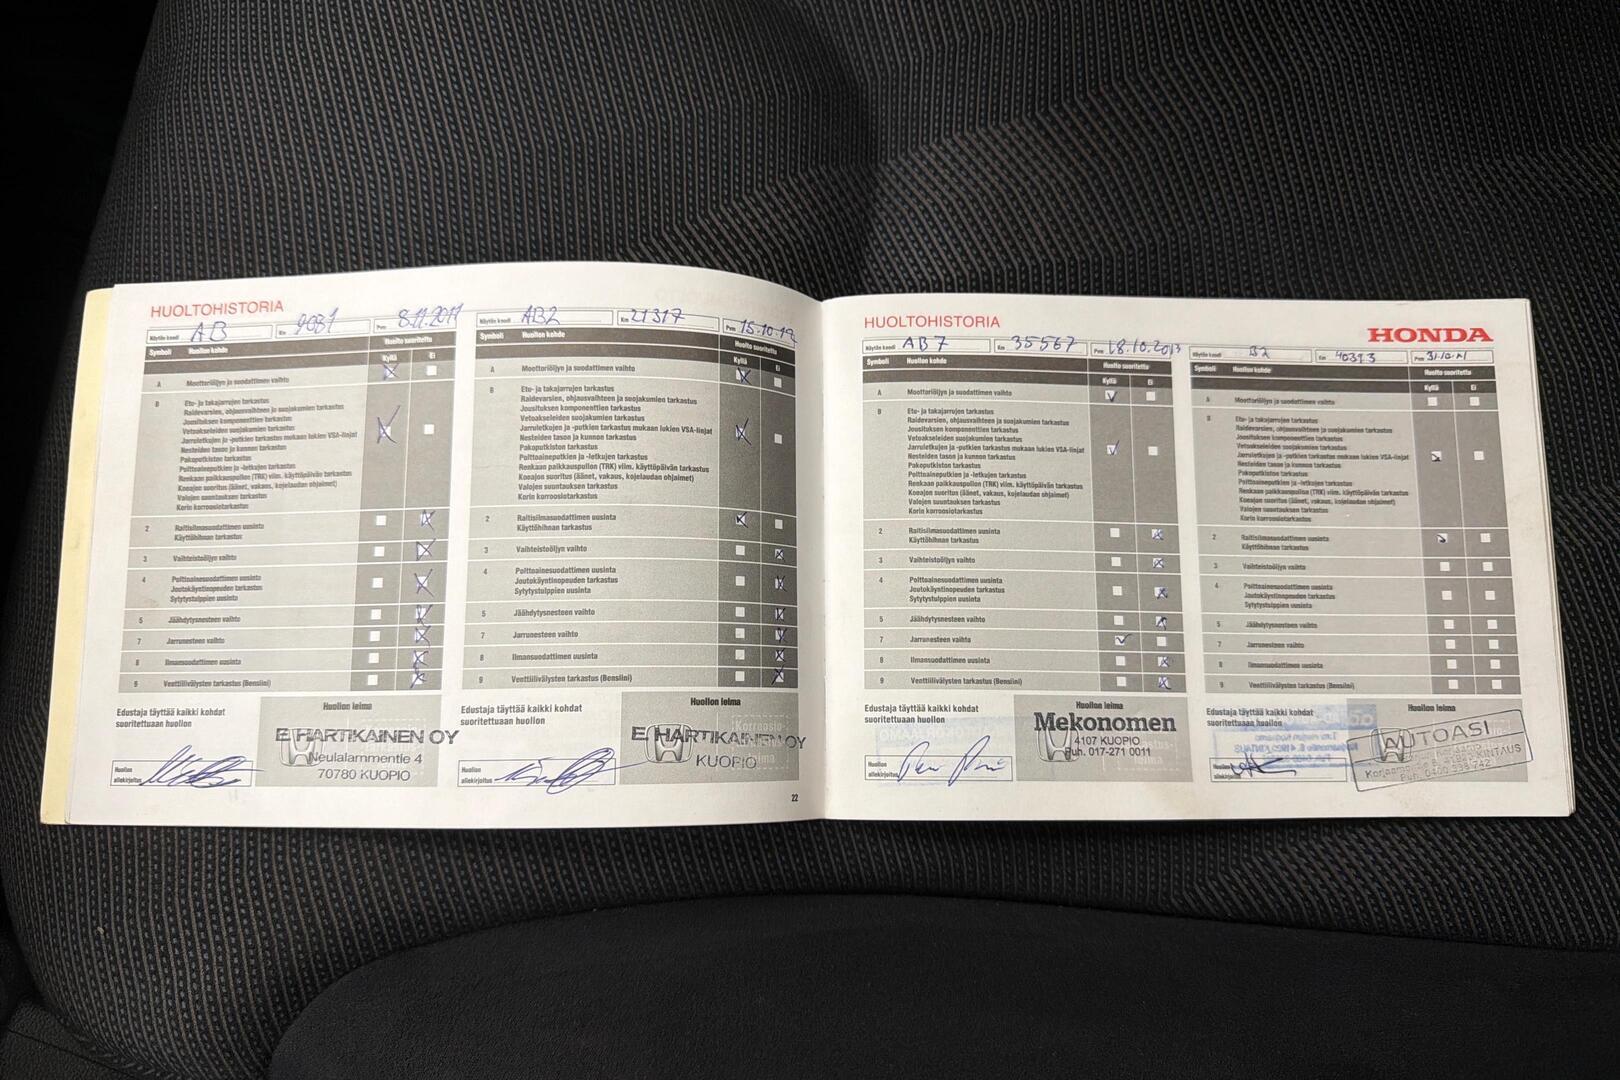 HUOLTOHISTORIA
Näytön koodi AB Km 9081 Pvm 8.11.2011
Symboli Huollon kohde Huolto suoritettu
Kyllä Ei
A Moottoriöljyn ja suodattimen vaihto
B Etu- ja takajarrujen tarkastus
Raidevarsien, ohjausvaihteen ja suojakumien tarkastus
Jousituksen komponenttien tarkastus
Vetoakseleiden suojakumien tarkastus
Jarruletkujen ja -putkien tarkastus mukaan lukien VSA-linjat
Nesteiden tason ja kunnon tarkastus
Pakoputkiston tarkastus
Polttoaineputkien ja -letkujen tarkastus
Renkaan paikkauspullon (TRK) viim. käyttöpäivän tarkastus
Koeajon suoritus (äänet, vakaus, kojelaudan ohjaimet)
Valojen suuntauksen tarkastus
Korin korroosiotarkastus
2 Raitisilmasuodattimen uusinta
Käyttöhihnan tarkastus
3 Vaihteistoöljyn vaihto
4 Polttoainesuodattimen uusinta
Joutokäyntinopeuden tarkastus
Sytytystulppien uusinta
5 Jäähdytysnesteen vaihto
7 Jarrunesteen vaihto
8 Ilmansuodattimen uusinta
9 Venttiilivälysten tarkastus (Bensiini)
Edustaja täyttää kaikki kohdat
suoritettuaan huollon
Huollon leima
E. HARTIKAINEN OY
Neulalammentie 4
70780 KUOPIO
Huollon
allekirjoitus
Näytön koodi AB2 Km 21317 Pvm 15.10.12
Symboli Huollon kohde Huolto suoritettu
Kyllä Ei
A Moottoriöljyn ja suodattimen vaihto
B Etu- ja takajarrujen tarkastus
Raidevarsien, ohjausvaihteen ja suojakumien tarkastus
Jousituksen komponenttien tarkastus
Vetoakseleiden suojakumien tarkastus
Jarruletkujen ja -putkien tarkastus mukaan lukien VSA-linjat
Nesteiden tason ja kunnon tarkastus
Pakoputkiston tarkastus
Polttoaineputkien ja -letkujen tarkastus
Renkaan paikkauspullon (TRK) viim. käyttöpäivän tarkastus
Koeajon suoritus (äänet, vakaus, kojelaudan ohjaimet)
Valojen suuntauksen tarkastus
Korin korroosiotarkastus
2 Raitisilmasuodattimen uusinta
Käyttöhihnan tarkastus
3 Vaihteistoöljyn vaihto
4 Polttoainesuodattimen uusinta
Joutokäyntinopeuden tarkastus
Sytytystulppien uusinta
5 Jäähdytysnesteen vaihto
7 Jarrunesteen vaihto
8 Ilmansuodattimen uusinta
9 Venttiilivälysten tarkastus (Bensiini)
Edustaja täyttää kaikki kohdat
suoritettuaan huollon
Huollon leima
E. HARTIKAINEN OY
KUOPIO
Huollon
allekirjoitus
22
HUOLTOHISTORIA
HONDA
Näytön koodi AB7 Km 35567 Pvm 18.10.2013
Symboli Huollon kohde Huolto suoritettu
Kyllä Ei
A Moottoriöljyn ja suodattimen vaihto
B Etu- ja takajarrujen tarkastus
Raidevarsien, ohjausvaihteen ja suojakumien tarkastus
Jousituksen komponenttien tarkastus
Vetoakseleiden suojakumien tarkastus
Jarruletkujen ja -putkien tarkastus mukaan lukien VSA-linjat
Nesteiden tason ja kunnon tarkastus
Pakoputkiston tarkastus
Polttoaineputkien ja -letkujen tarkastus
Renkaan paikkauspullon (TRK) viim. käyttöpäivän tarkastus
Koeajon suoritus (äänet, vakaus, kojelaudan ohjaimet)
Valojen suuntauksen tarkastus
Korin korroosiotarkastus
2 Raitisilmasuodattimen uusinta
Käyttöhihnan tarkastus
3 Vaihteistoöljyn vaihto
4 Polttoainesuodattimen uusinta
Joutokäyntinopeuden tarkastus
Sytytystulppien uusinta
5 Jäähdytysnesteen vaihto
7 Jarrunesteen vaihto
8 Ilmansuodattimen uusinta
9 Venttiilivälysten tarkastus (Bensiini)
Edustaja täyttää kaikki kohdat
suoritettuaan huollon
Huollon leima
Mekonomen
4107 KUOPIO
Puh. 017-271 0011
Huollon
allekirjoitus
Näytön koodi B2 Km 40393 Pvm
Symboli Huollon kohde Huolto suoritettu
Kyllä Ei
A Moottoriöljyn ja suodattimen vaihto
B Etu- ja takajarrujen tarkastus
Raidevarsien, ohjausvaihteen ja suojakumien tarkastus
Jousituksen komponenttien tarkastus
Vetoakseleiden suojakumien tarkastus
Jarruletkujen ja -putkien tarkastus mukaan lukien VSA-linjat
Nesteiden tason ja kunnon tarkastus
Pakoputkiston tarkastus
Polttoaineputkien ja -letkujen tarkastus
Renkaan paikkauspullon (TRK) viim. käyttöpäivän tarkastus
Koeajon suoritus (äänet, vakaus, kojelaudan ohjaimet)
Valojen suuntauksen tarkastus
Korin korroosiotarkastus
2 Raitisilmasuodattimen uusinta
Käyttöhihnan tarkastus
3 Vaihteistoöljyn vaihto
4 Polttoainesuodattimen uusinta
Joutokäyntinopeuden tarkastus
Sytytystulppien uusinta
5 Jäähdytysnesteen vaihto
7 Jarrunesteen vaihto
8 Ilmansuodattimen uusinta
9 Venttiilivälysten tarkastus (Bensiini)
Edustaja täyttää kaikki kohdat
suoritettuaan huollon
Huollon leima
AUTOASI
Puh. 0400 338 742
Huollon
allekirjoitus